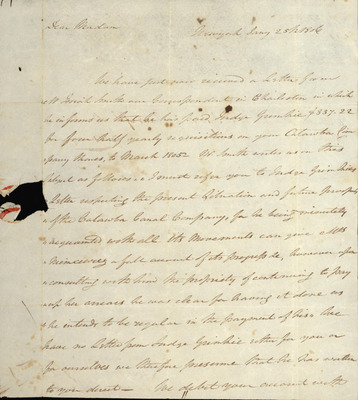 Dear Madam
Newyork May 28th 1806
We have just now received a Letter from
Mr Smith our Correspondent in Charleston in which
he informs us that he has paid Judge Grimkie $537.22
for four half yearly requisitions on your Catawba Com
pany Shares, to March 1805. Mr Smith writes us on this
as follows. I must refer you to Judge Grimkie's
Letter respecting the present Situation and future Prospects
of the Catawba Canal Company, for he being intimately
acquainted with all its Movements can give Mrs
a full account of its progress &c, however upon
consulting with him the Propriety of continuing to pay
up her arrears he was clear for having it done as
he intends to be regular in the payment of his. We
have no Letter from Judge Grimkie either for you or
for ourselves we therefore presume that he has written
to you direct — We debit your account with